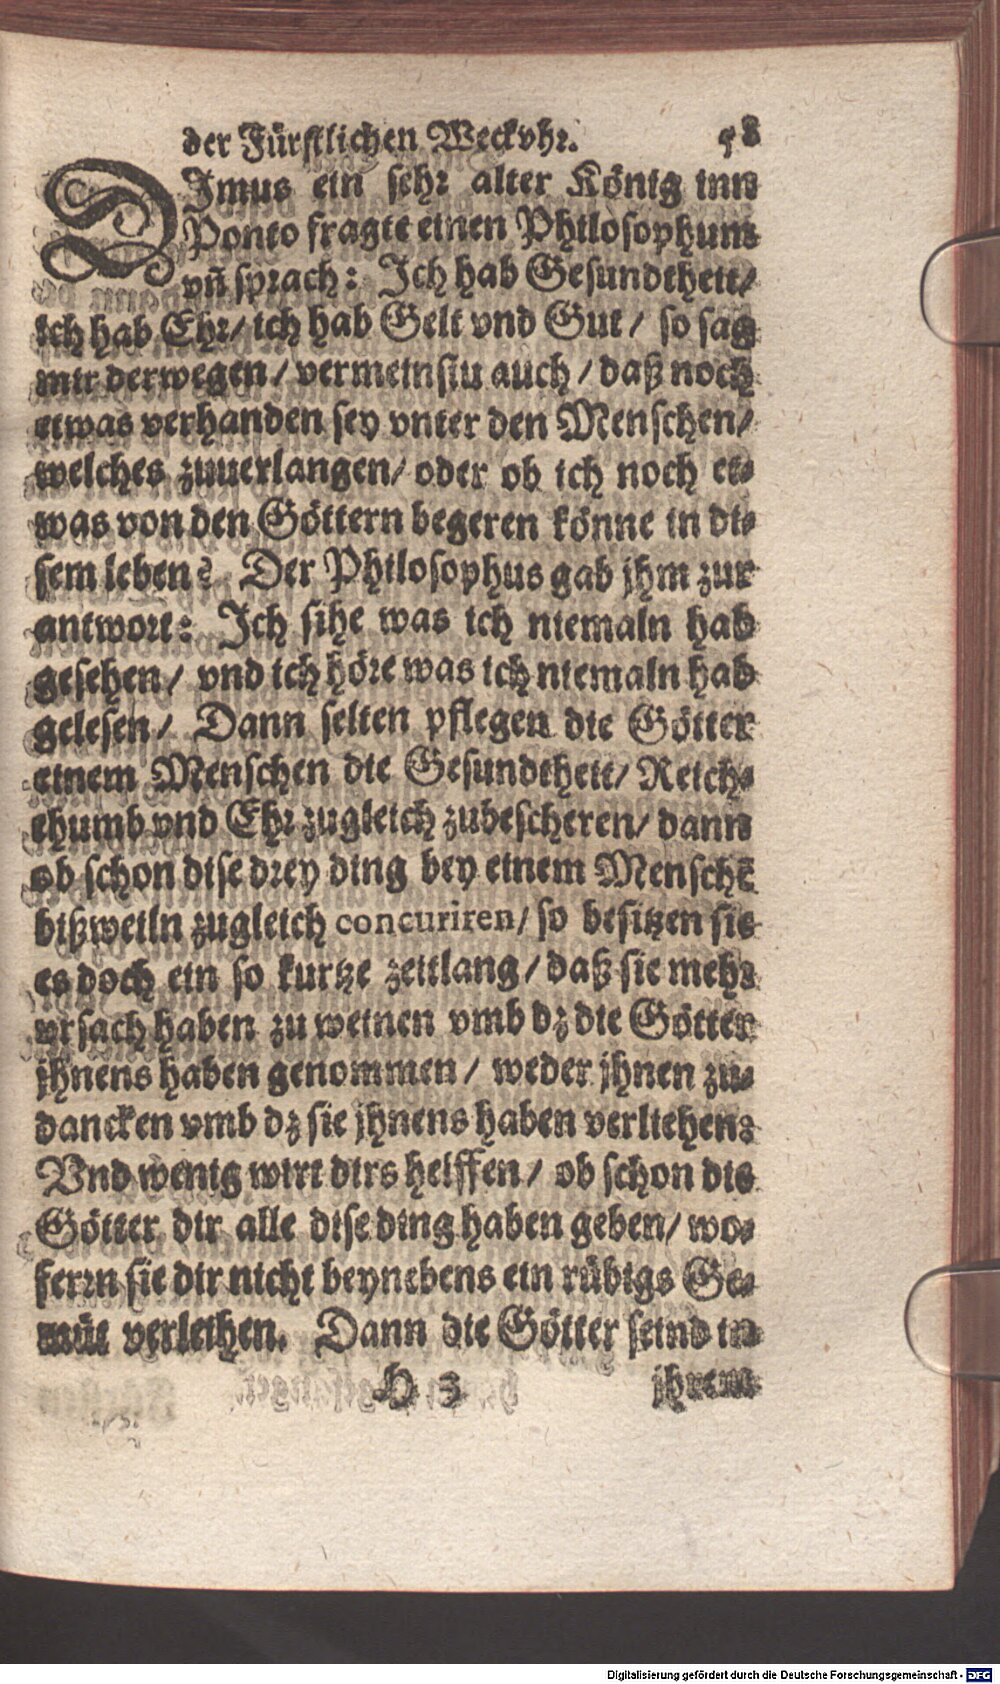 der Fürstlichen Weckvhr. 58
DImus ein sehr alter König inn
Ponto fragte einen Philosophum
vñ sprach: Ich hab Gesundtheit/
ich hab Ehr/ ich hab Gelt vnd Gut/ so sag
mir derwegen/ vermeinstu auch/ daß noch
etwas verhanden sey vnter den Menschen/
welches zuuerlangen/ oder ob ich noch et-
was von den Göttern begeren könne in di-
sem leben? Der Philosophus gab jhm zur
antwort: Ich sihe was ich niemaln hab
gesehen/ vnd ich höre was ich niemaln hab
gelesen/ Dann selten pflegen die Götter
einem Menschen die Gesundtheit/ Reich-
thumb vnd Ehr zugleich zubescheren/ dann
ob schon dise drey ding bey einem Menschẽ
bißweiln zugleich concuriren/ so besitzen sie
es doch ein so kurtze zeitlang/ daß sie mehr
vrsach haben zu weinen vmb dz die Götter
jhnens haben genommen/ weder jhnen zu-
dancken vmb dz sie jhnens haben verliehen:
Vnd wenig wirt dirs helffen/ ob schon die
Götter dir alle dise ding haben geben/ wo-
ferrn sie dir nicht beynebens ein rübigs Ge-
müt verleihen. Dann die Götter seind in
H 3 jhrem
Digitalisierung gefördert durch die Deutsche Forschungsgemeinschaft - DFG